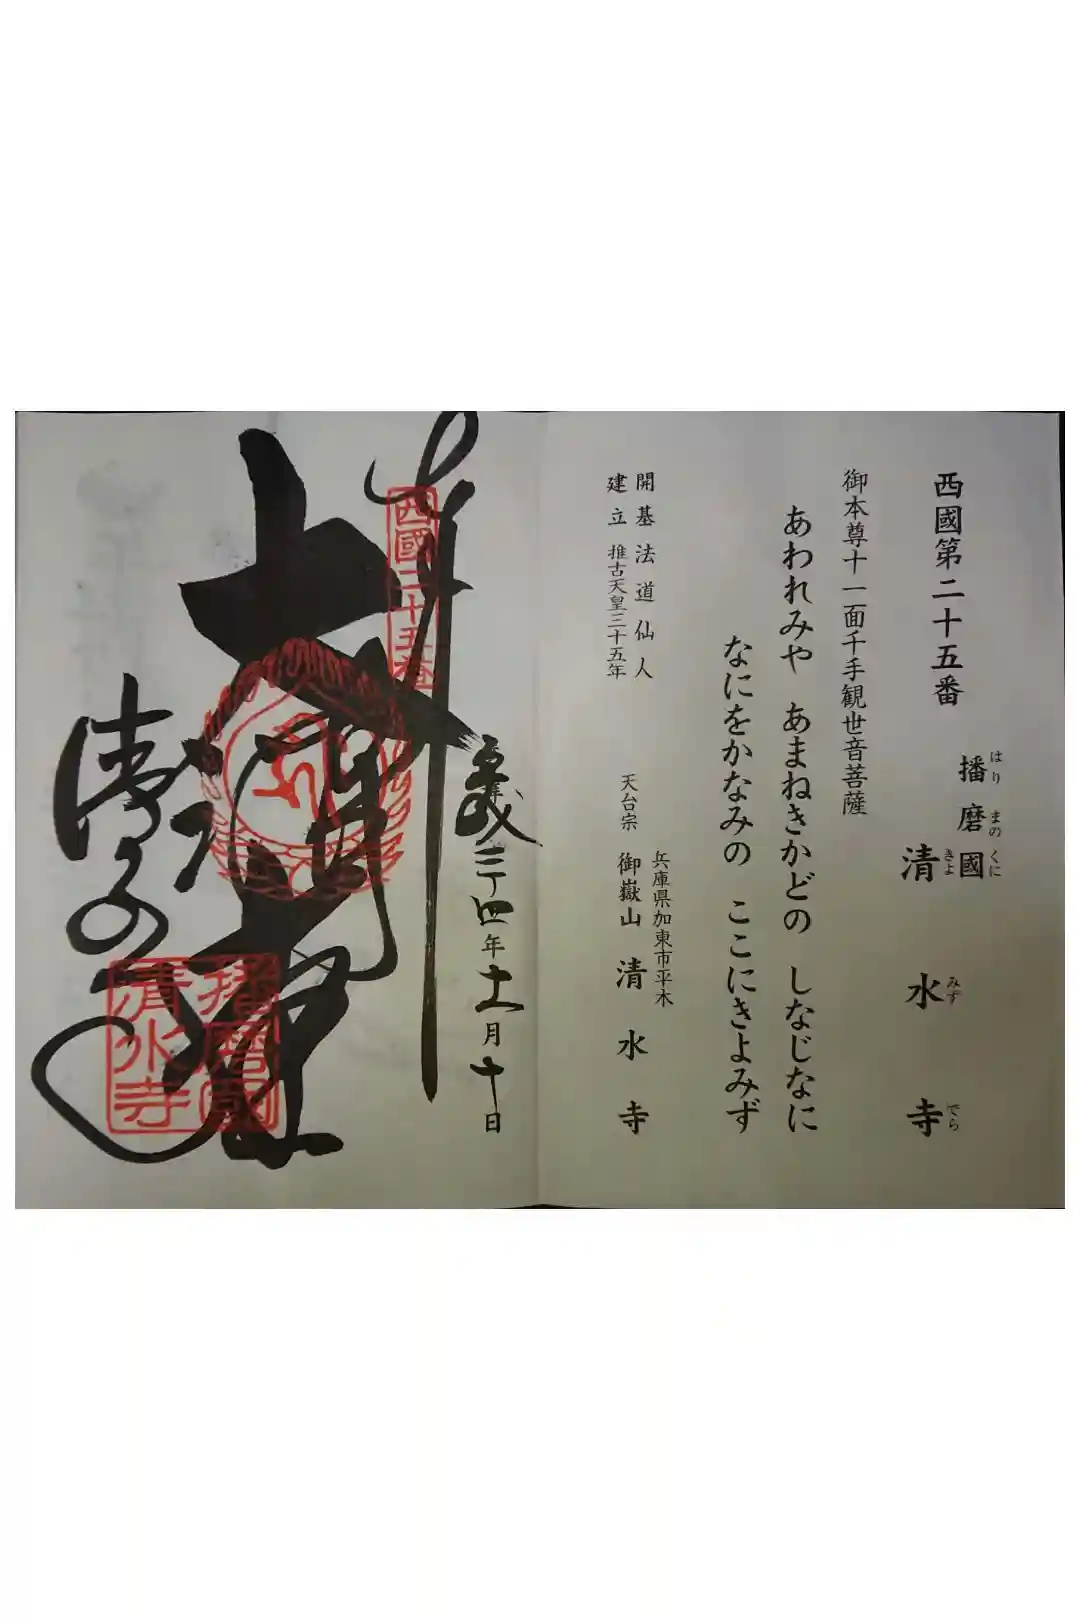 西國第二十五番
播磨國
はりまのくに
清水寺
きよみずでら
御本尊十一面千手観世音菩薩
あわれみや あまねきかどの しなじなに
なにをかなみの ここにきよみず
開基 法道仙人
建立 推古天皇三十五年
兵庫県加東市平木
天台宗 御嶽山 清水寺
年十一月十日
奉拝
西國二十五番
大講堂
清水寺
播磨國
清水寺